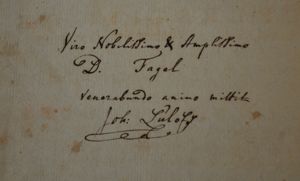 Viro Nobilissimo & Amplissimo
D. Fagel
venerabundo animo mittit
Joh: Lulofs